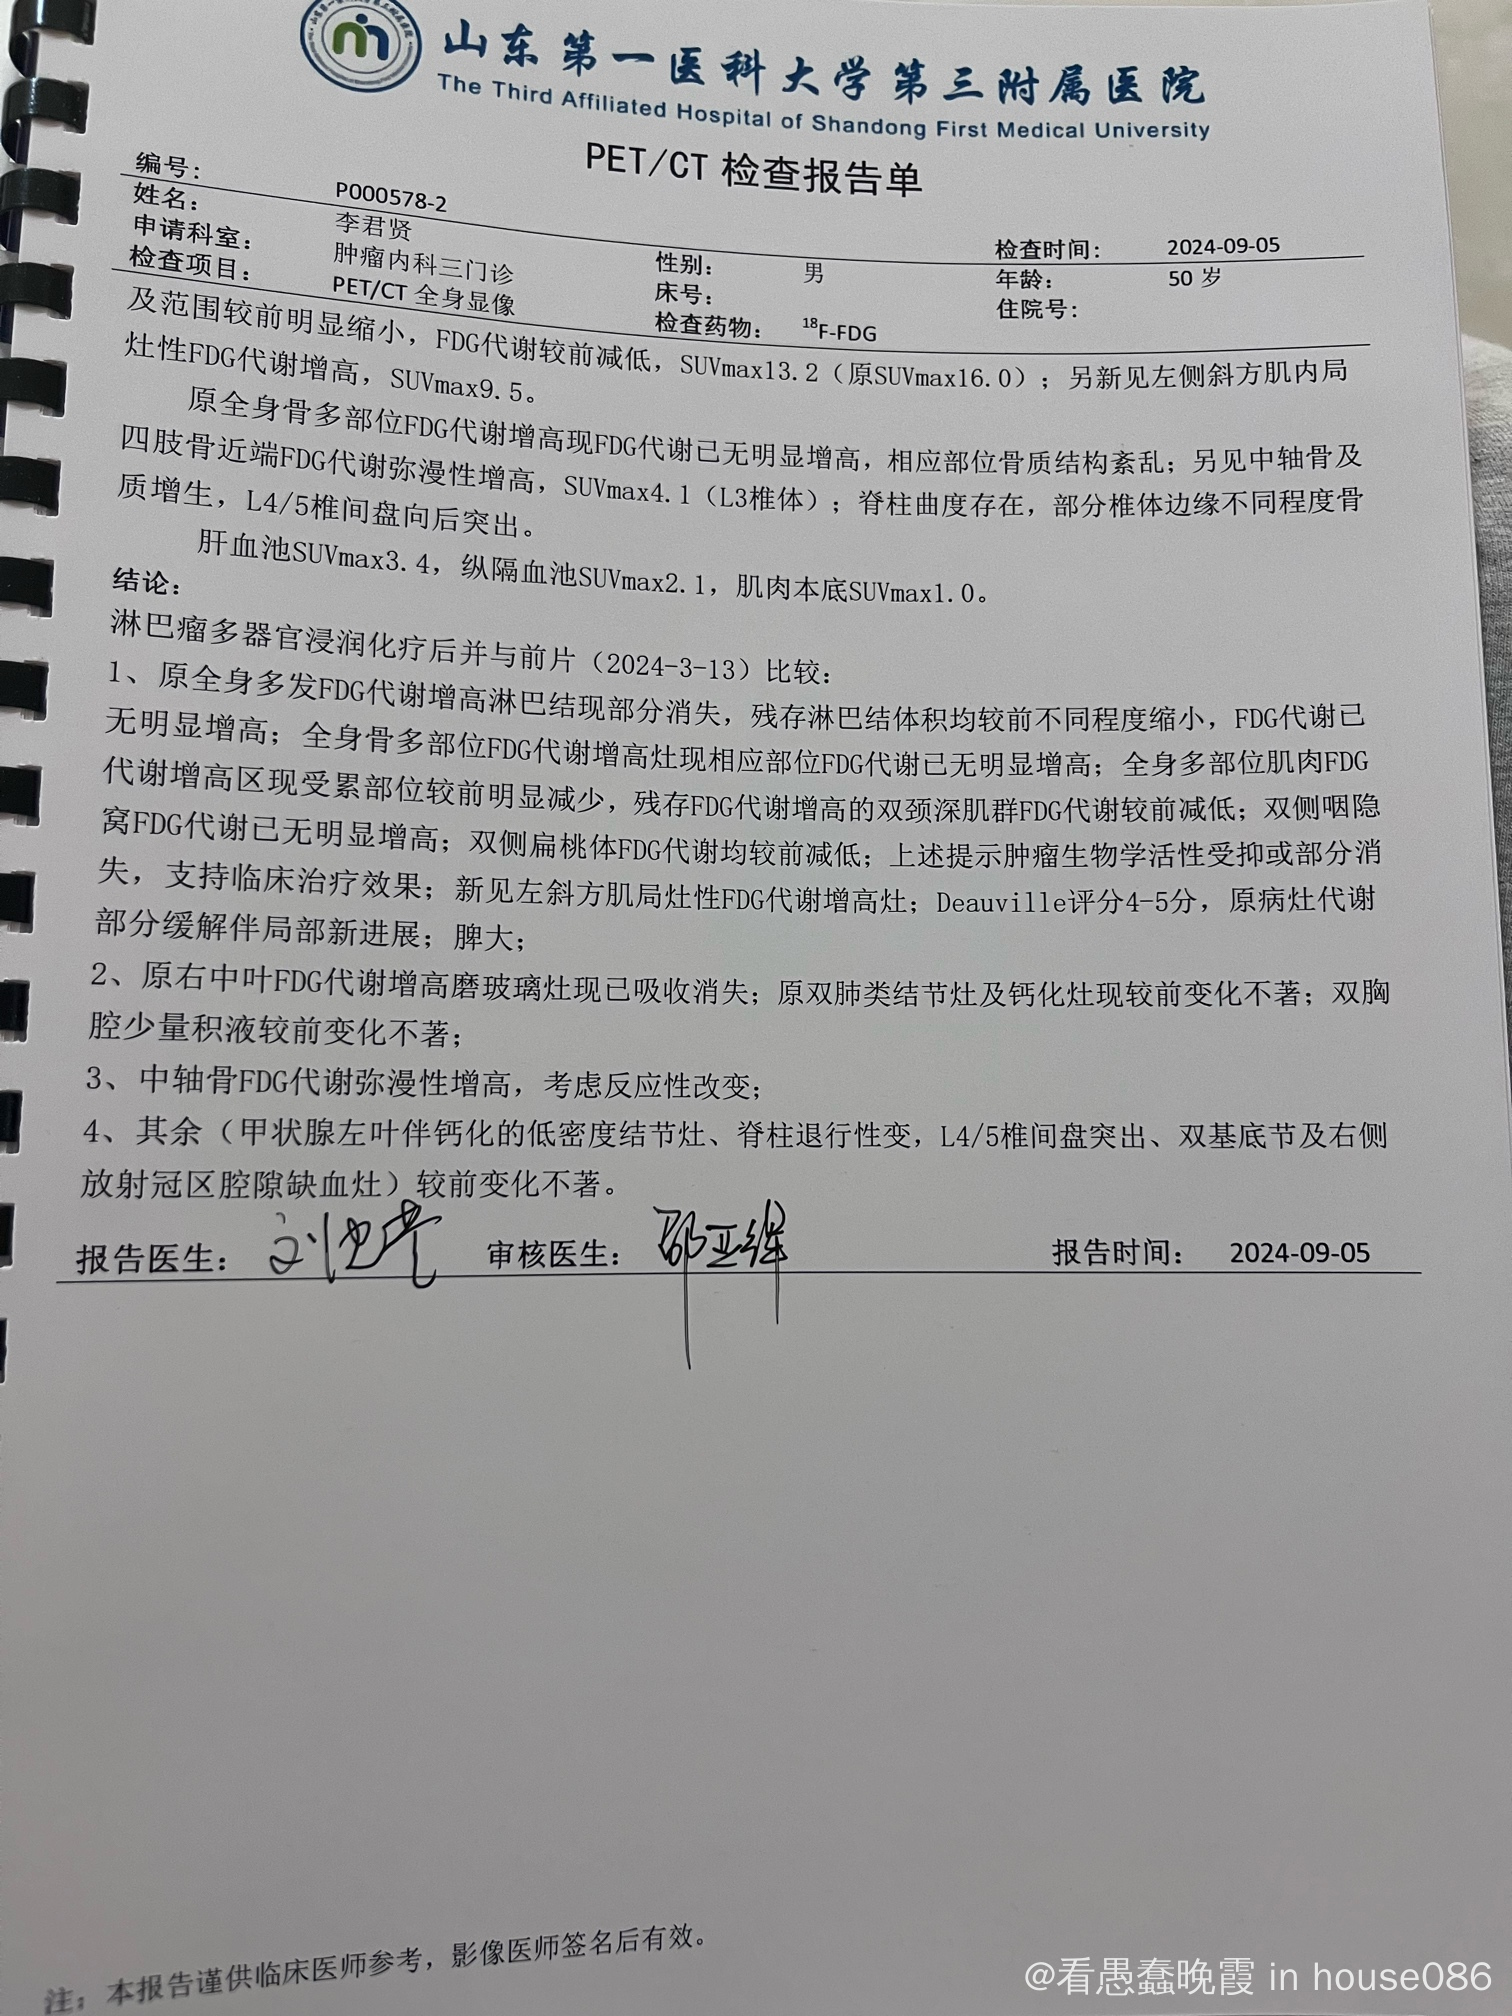 山东第一医科大学第三附属医院
The Third Affiliated Hospital of Shandong First Medical University
PET/CT 检查报告单
编号: P000578-2 检查时间: 2024-09-05
姓名: 李君贤 性别: 男 年龄: 50 岁
申请科室: 肿瘤内科三门诊 床号: 住院号:
检查项目: PET/CT 全身显像 检查药物: ¹⁸F-FDG
及范围较前明显缩小，FDG代谢较前减低，SUVmax13.2（原SUVmax16.0）；另新见左侧斜方肌内局
灶性FDG代谢增高，SUVmax9.5。
原全身骨多部位FDG代谢增高现FDG代谢已无明显增高，相应部位骨质结构紊乱；另见中轴骨及
四肢骨近端FDG代谢弥漫性增高，SUVmax4.1（L3椎体）；脊柱曲度存在，部分椎体边缘不同程度骨
质增生，L4/5椎间盘向后突出。
肝血池SUVmax3.4，纵隔血池SUVmax2.1，肌肉本底SUVmax1.0。
结论:
淋巴瘤多器官浸润化疗后并与前片（2024-3-13）比较:
1、原全身多发FDG代谢增高淋巴结现部分消失，残存淋巴结体积均较前不同程度缩小，FDG代谢已
无明显增高；全身骨多部位FDG代谢增高灶现相应部位FDG代谢已无明显增高；全身多部位肌肉FDG
代谢增高区现受累部位较前明显减少，残存FDG代谢增高的双颈深肌群FDG代谢较前减低；双侧咽隐
窝FDG代谢已无明显增高；双侧扁桃体FDG代谢均较前减低；上述提示肿瘤生物学活性受抑或部分消
失，支持临床治疗效果；新见左斜方肌局灶性FDG代谢增高灶；Deauville评分4-5分，原病灶代谢
部分缓解伴局部新进展；脾大；
2、原右中叶FDG代谢增高磨玻璃灶现已吸收消失；原双肺类结节灶及钙化灶现较前变化不著；双胸
腔少量积液较前变化不著；
3、中轴骨FDG代谢弥漫性增高，考虑反应性改变；
4、其余（甲状腺左叶伴钙化的低密度结节灶、脊柱退行性变，L4/5椎间盘突出、双基底节及右侧
放射冠区腔隙缺血灶）较前变化不著。
报告医生: 审核医生: 报告时间: 2024-09-05
注：本报告谨供临床医师参考，影像医师签名后有效。
@看愚蠢晚霞 in house086